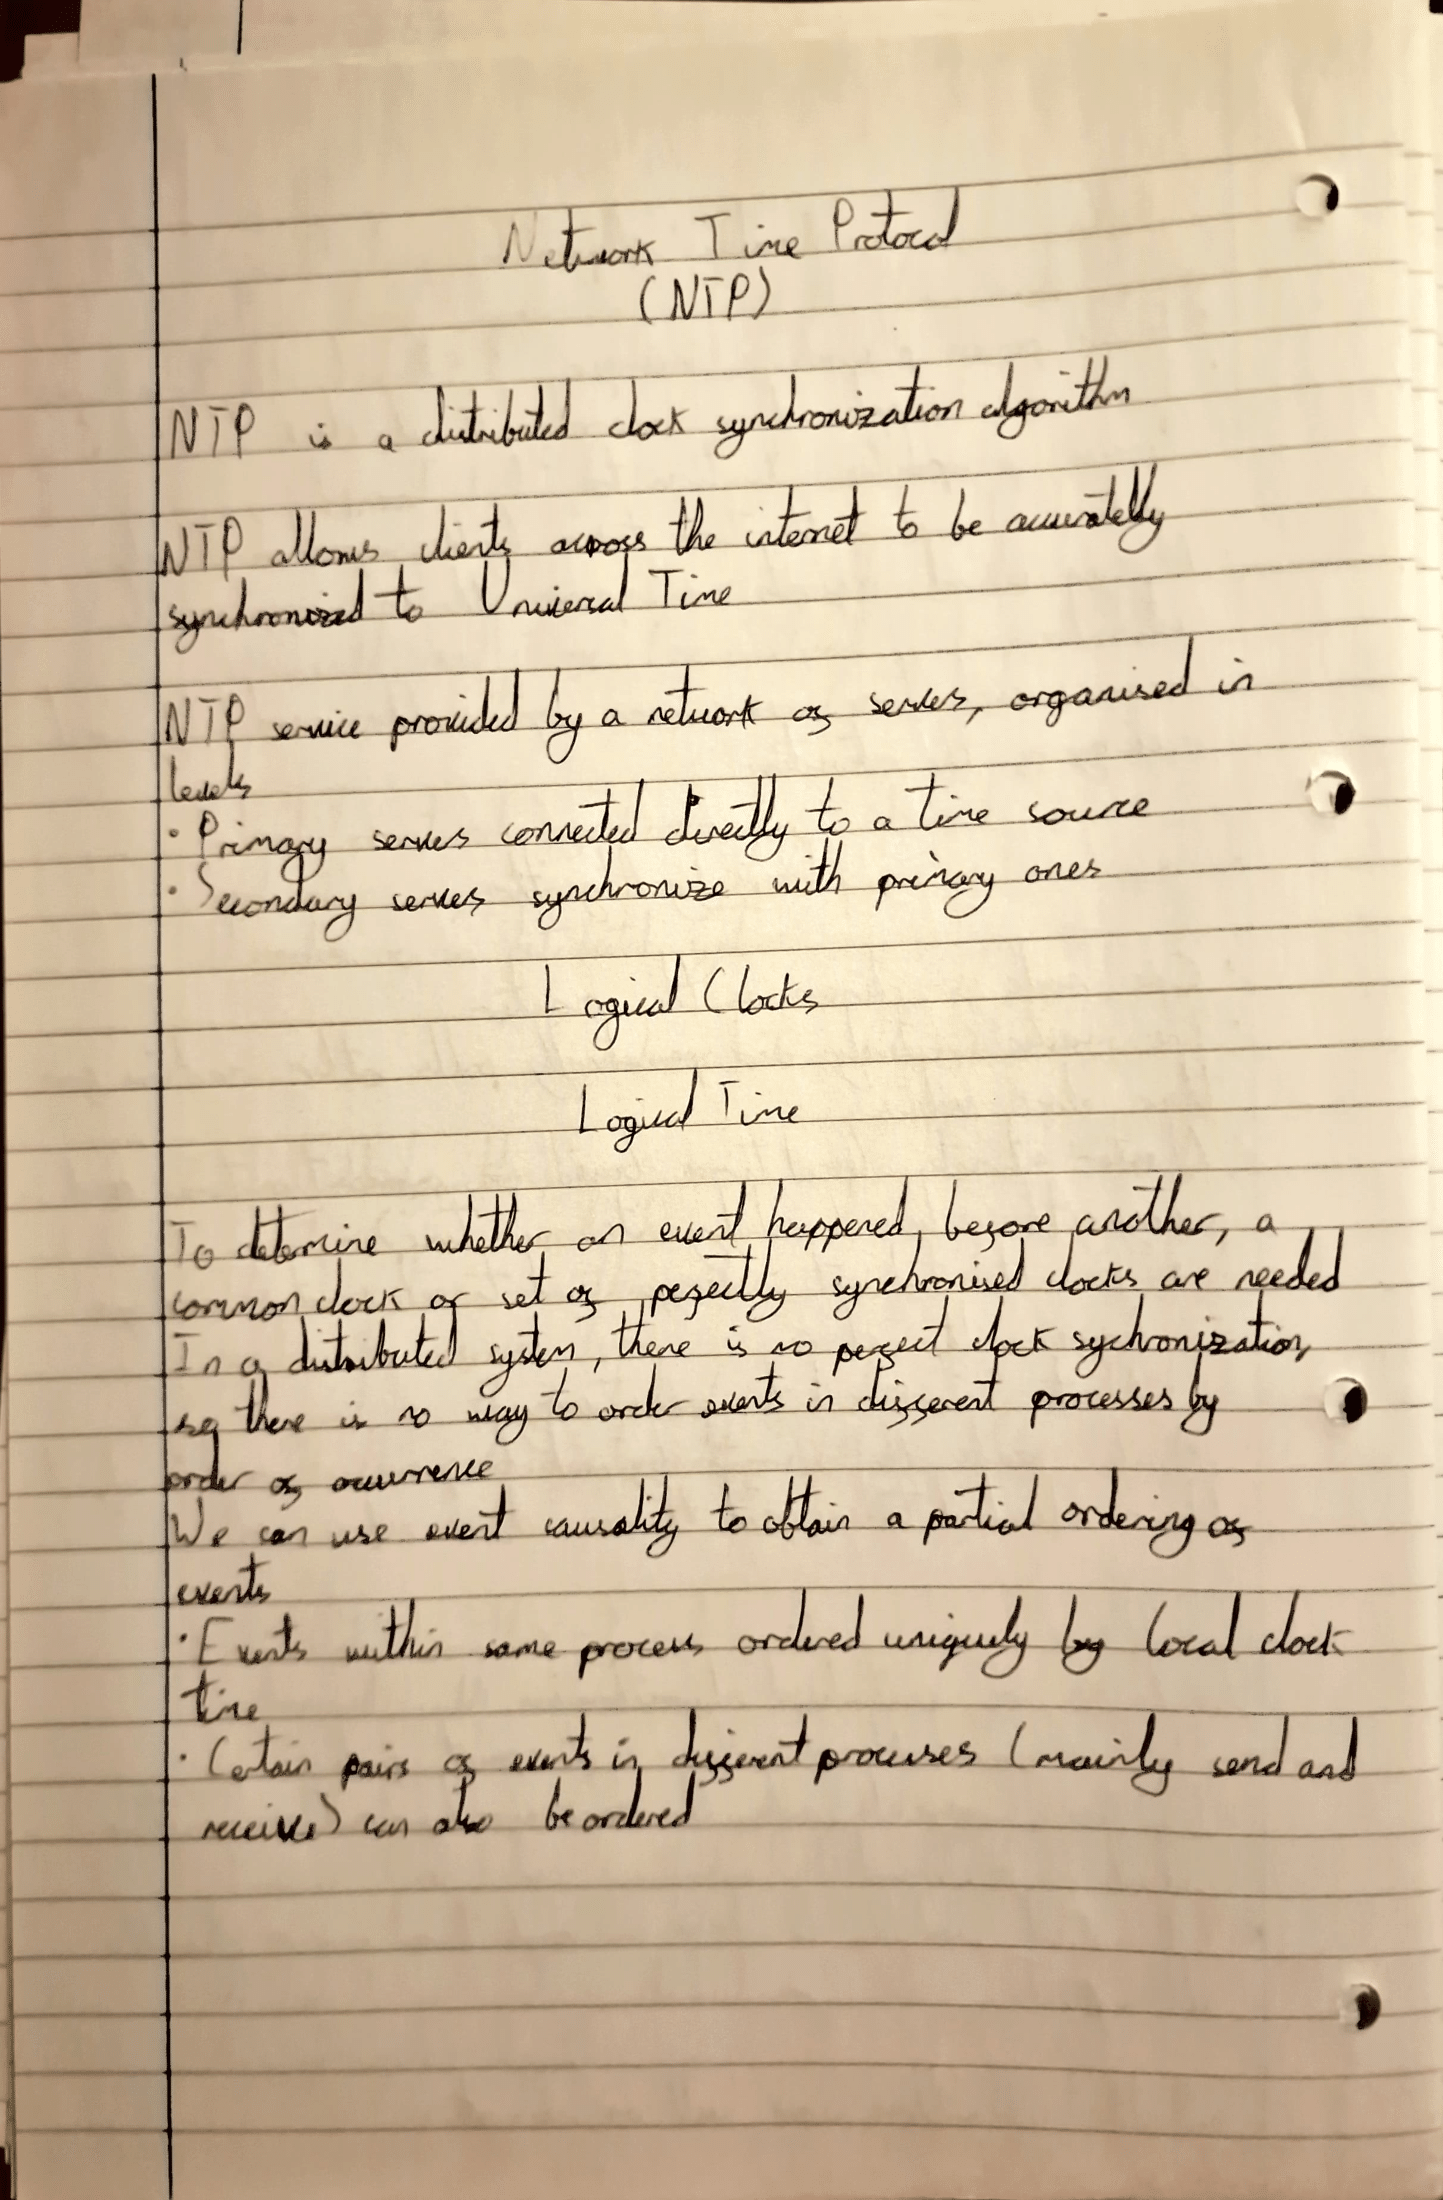 Network Time Protocol
(NTP)
NTP is a distributed clock synchronization algorithm
NTP allows clients across the internet to be accurately
synchronized to Universal Time
NTP service provided by a network of servers, organised in
levels
· Primary servers connected directly to a time source
· Secondary servers synchronize with primary ones
Logical Clocks
Logical Time
To determine whether an event happened before another, a
common clock or set of perfectly synchronised clocks are needed
In a distributed system, there is no perfect clock sychronization,
so there is no way to order events in different processes by
order of occurrence
We can use event causality to obtain a partial ordering of
events
· Events within same process ordered uniquely by local clock
time
· Certain pairs of events in different processes (mainly send and
receive) can also be ordered